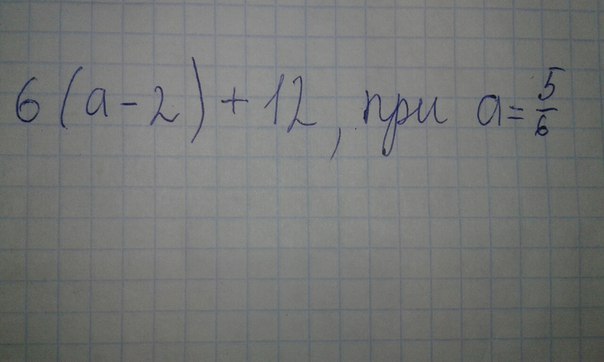 6(a-2)+12, при a=5/6